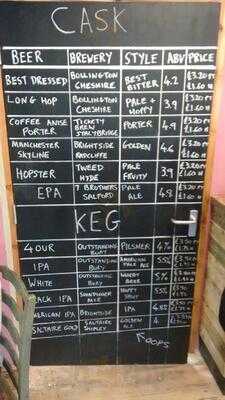 CASK
BEER BREWERY STYLE ABV PRICE
BEST DRESSED BOLLINGTON CHESHIRE BEST BITTER 4.2 £3.20 PT £1.60 H
LONG HOP BOLLINGTON CHESHIRE PALE + HOPPY 3.9 £3.20 PT £1.60 H
COFFEE ANISE PORTER TICKETY BREW STALYBRIDGE PORTER 4.9 £3.20 £1.60
MANCHESTER SKYLINE BRIGHTSIDE RADCLIFFE GOLDEN 4.6 £3.20 £1.60
HOPSTER TWEED HYDE PALE FRUITY 3.9 £3.20 £1.60
EPA 7 BROTHERS SALFORD PALE ALE 4.8 £3.20 £1.60
KEG
4 OUR OUTSTANDING BURY PILSNER 4%
IPA OUTSTANDING BURY AMERICAN PALE ALE 5.5%
WHITE OUTSTANDING BURY WHEAT BEER 5%
ACK IPA 5.5%
MERICAN IPA BRIGHTSIDE IPA
SALTAIRE GOLD SALTAIRE SHIPLEY GOLDEN ALE 4
OOPS